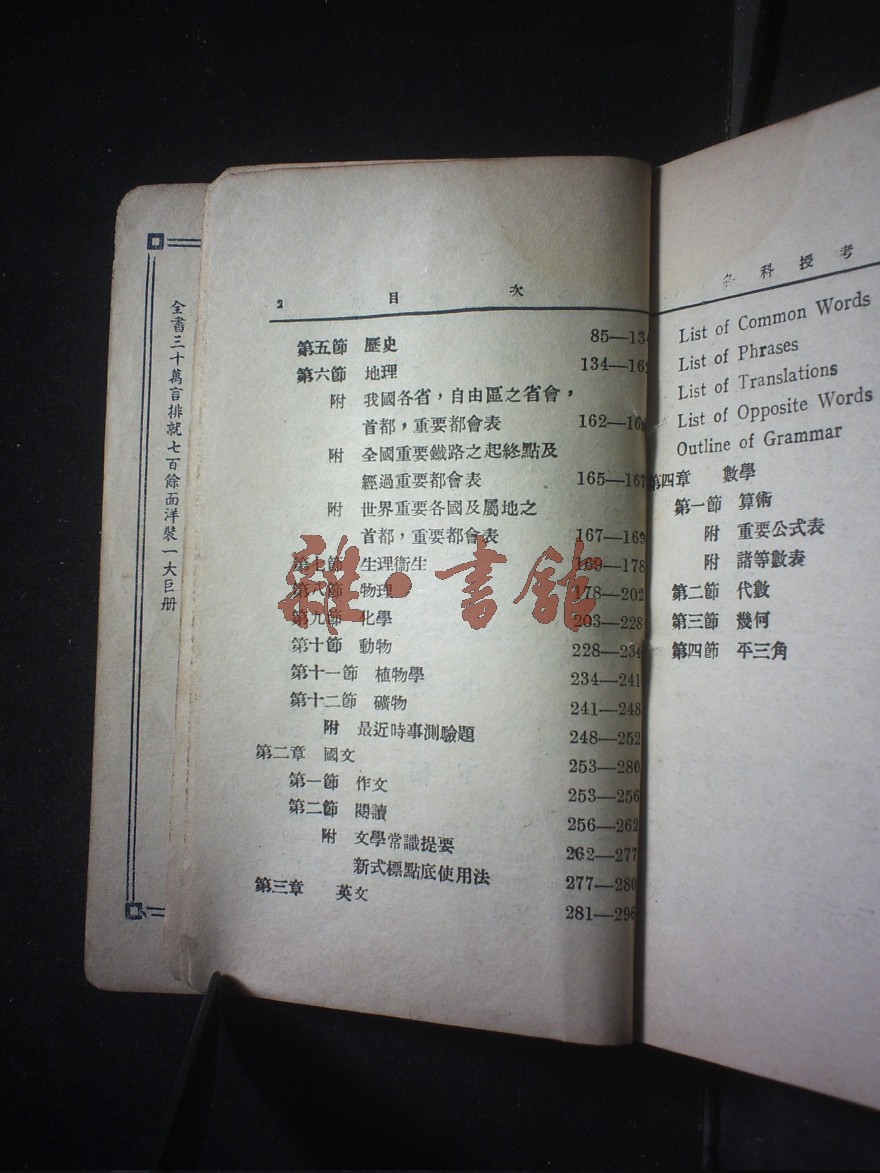 全書三十萬言排就七百餘面洋裝一大巨册
2 目 次
第五節 歷史 85—134
第六節 地理 134—162
附 我國各省，自由區之省會，
首都，重要都會表 162—16
附 全國重要鐵路之起終點及
經過重要都會表 165—167
附 世界重要各國及屬地之
首都，重要都會表 167—169
第七節 生理衞生 169—178
第八節 物理 178—202
第九節 化學 203—228
第十節 動物 228—234
第十一節 植物學 234—241
第十二節 礦物 241—248
附 最近時事測驗題 248—252
第二章 國文 253—280
第一節 作文 253—256
第二節 閱讀 256—262
附 文學常識提要 262—277
新式標點底使用法 277—280
第三章 英文 281—296
雜·書館
各科授考
List of Common Words
List of Phrases
List of Translations
List of Opposite Words
Outline of Grammar
第四章 數學
第一節 算術
附 重要公式表
附 諸等數表
第二節 代數
第三節 幾何
第四節 平三角